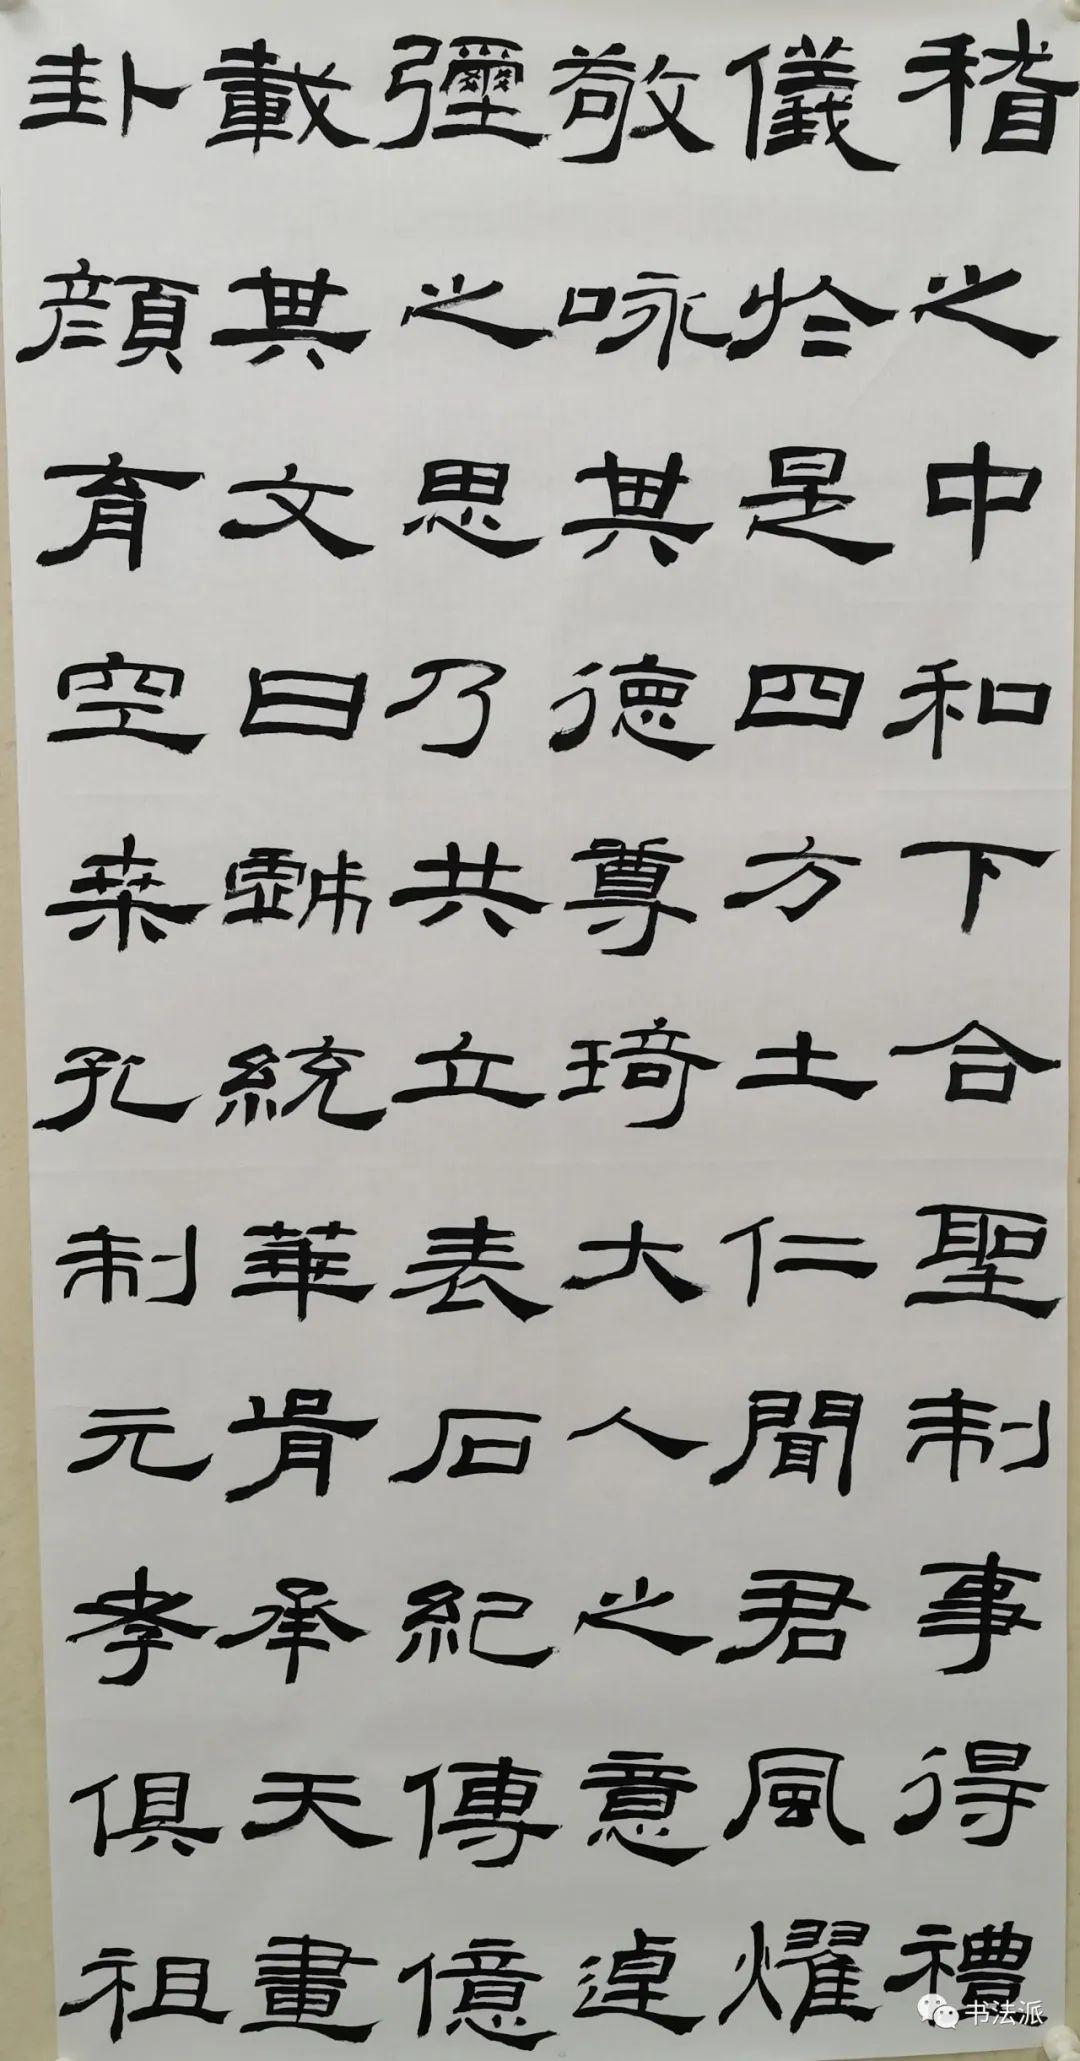 稽之中和下合聖制事得禮
儀於是四方土仁聞君風燿
敬咏其德尊琦大人之意逴
彌之思乃共立表石紀傳億
載其文曰統華胥承天畫
卦顏育空桑孔制元孝俱祖
书法派